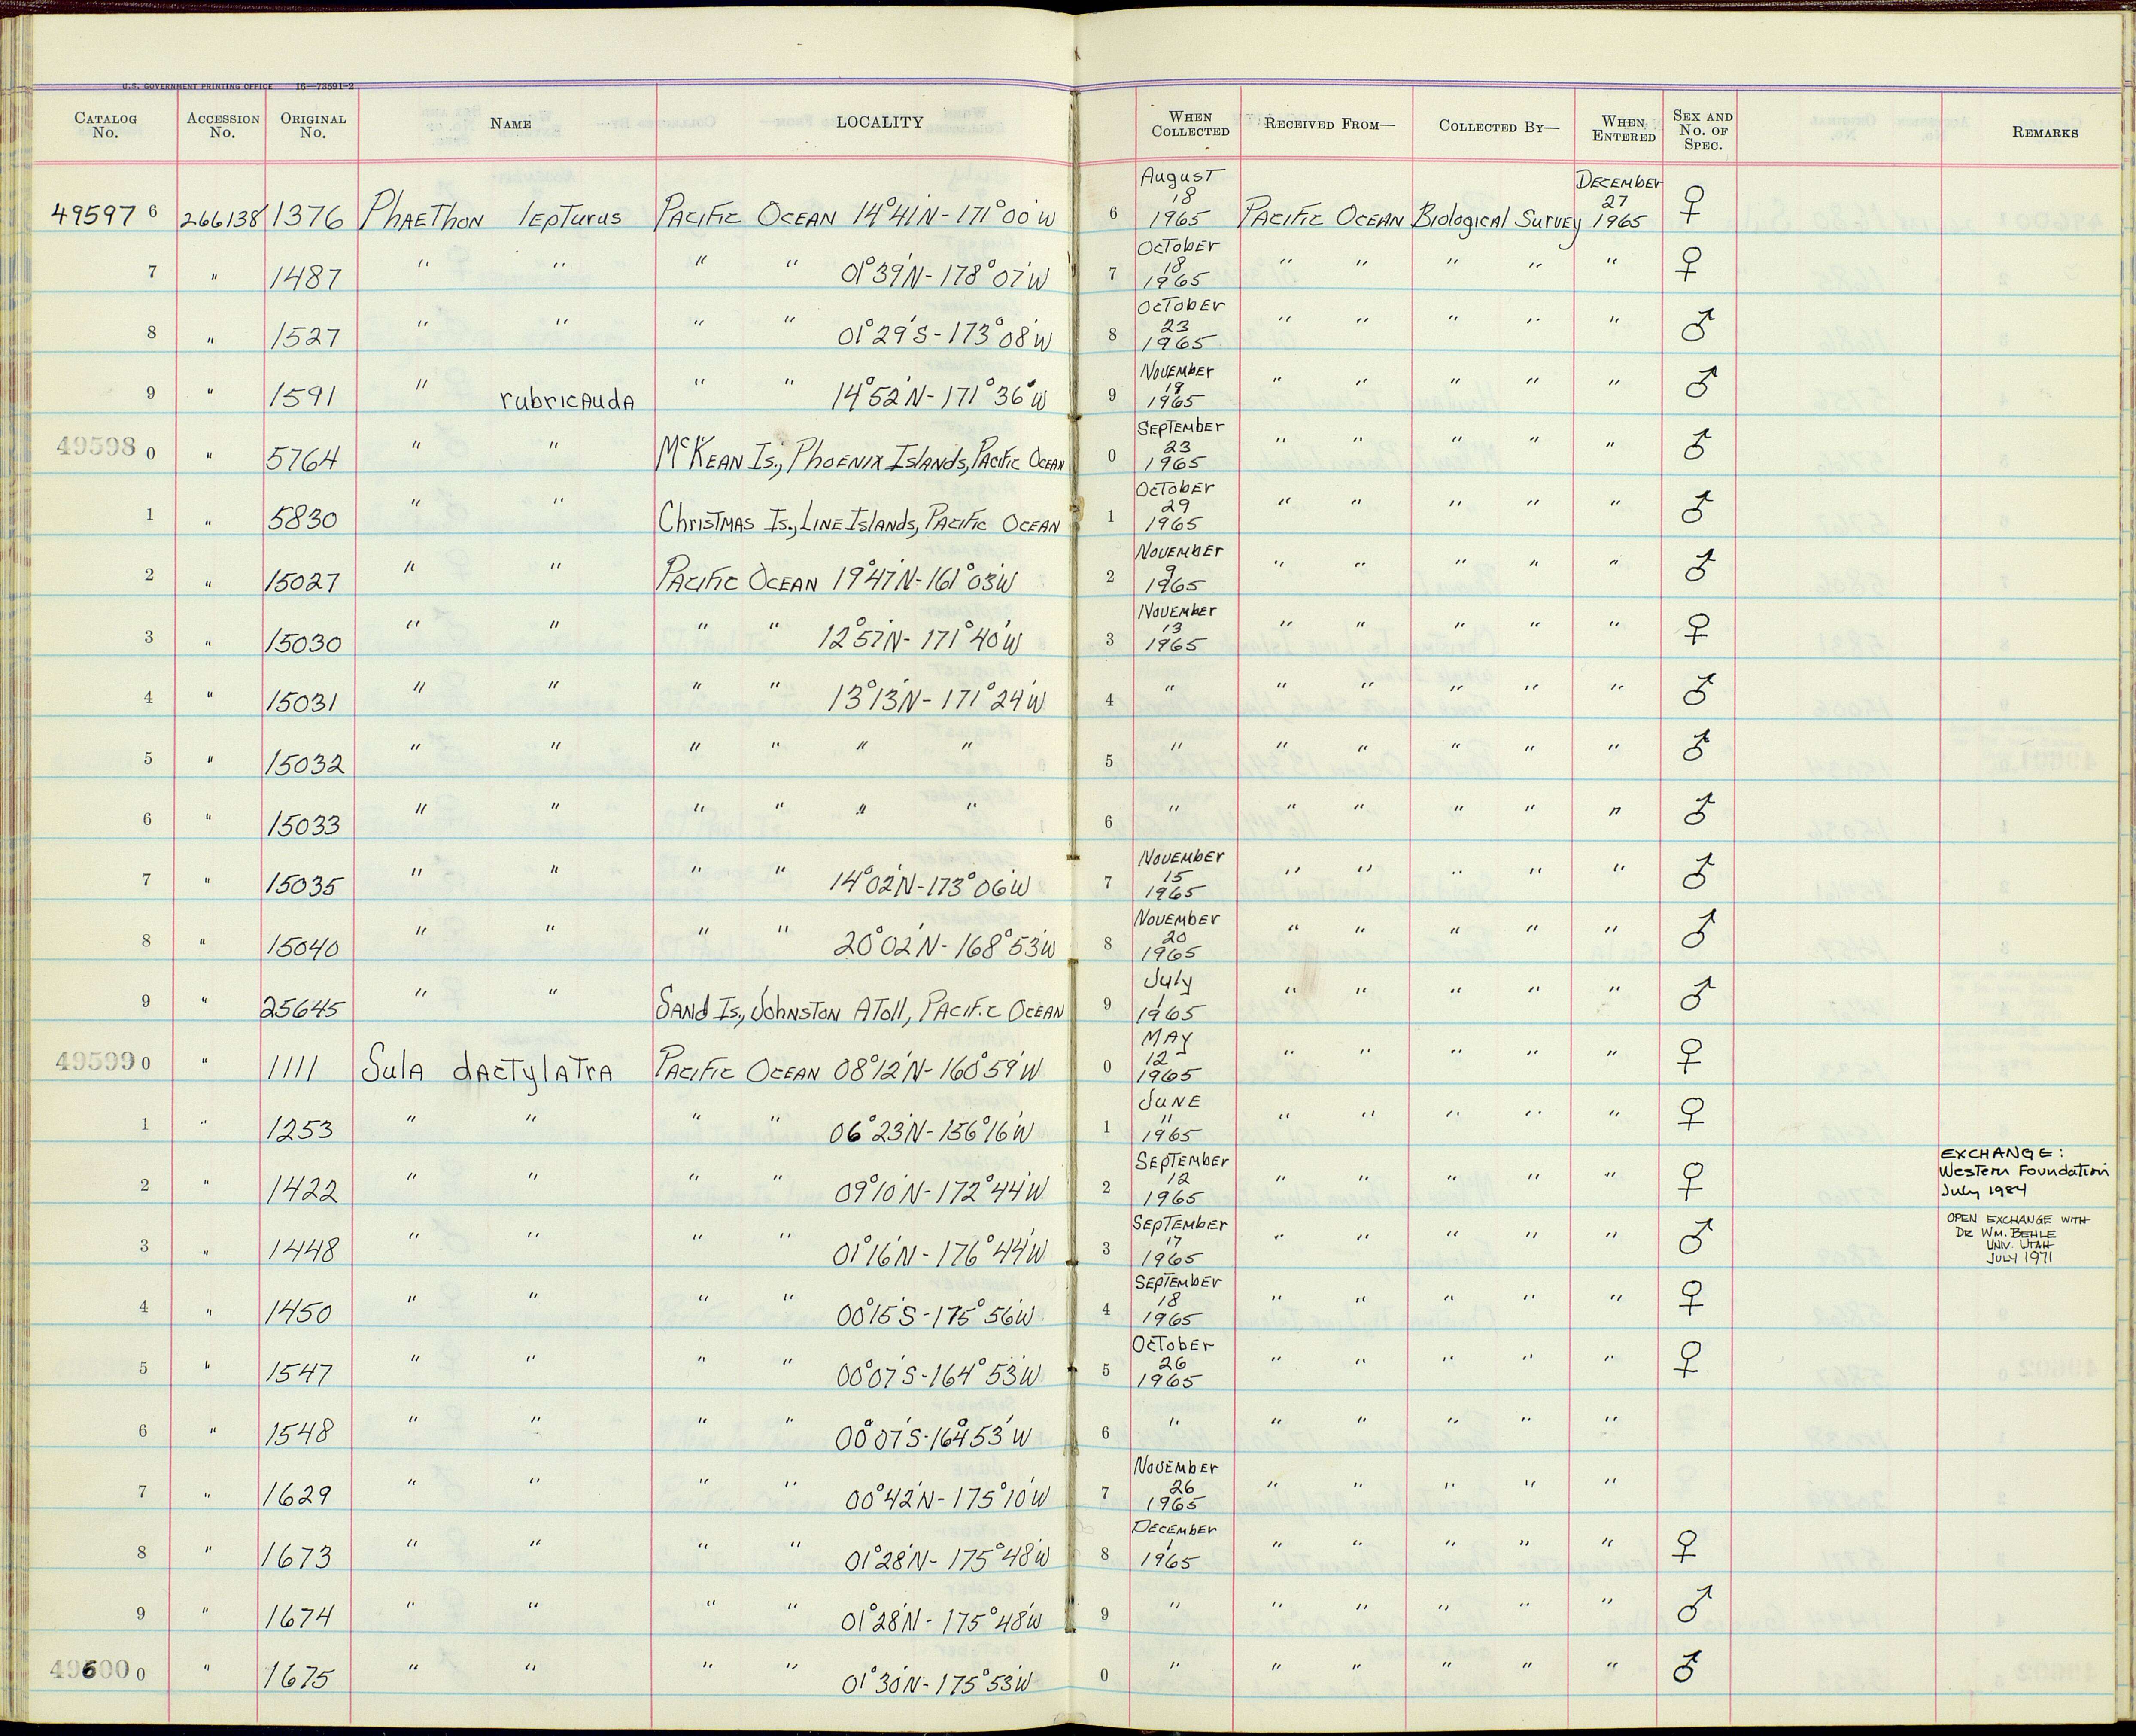 U.S. GOVERNMENT PRINTING OFFICE 16—73591-2
CATALOG No. ACCESSION No. ORIGINAL No. NAME LOCALITY WHEN COLLECTED RECEIVED FROM— COLLECTED BY— WHEN ENTERED SEX AND No. OF SPEC. REMARKS
49597 6 266138 1376 Phaethon lepturus Pacific Ocean 14°41'N-171°00'W 6 August 18 1965 Pacific Ocean Biological Survey December 27 1965 ♀
7 " 1487 " " " " 01°39'N-178°07'W 7 October 18 1965 " " " " " ♀
8 " 1527 " " " " 01°29'S-173°08'W 8 October 23 1965 " " " " " ♂
9 " 1591 " rubricauda " " 14°52'N-171°36'W 9 November 19 1965 " " " " " ♂
49598 0 " 5764 " " McKean Is., Phoenix Islands, Pacific Ocean 0 September 23 1965 " " " " " ♂
1 " 5830 " " Christmas Is., Line Islands, Pacific Ocean 1 October 29 1965 " " " " " ♂
2 " 15027 " " Pacific Ocean 19°47'N-161°03'W 2 November 9 1965 " " " " " ♂
3 " 15030 " " " " 12°57'N-171°40'W 3 November 13 1965 " " " " " ♀
4 " 15031 " " " " 13°13'N-171°24'W 4 " " " " " " ♂
5 " 15032 " " " " " " 5 " " " " " " ♂
6 " 15033 " " " " " " 6 " " " " " " ♂
7 " 15035 " " " " 14°02'N-173°06'W 7 November 15 1965 " " " " " ♂
8 " 15040 " " " " 20°02'N-168°53'W 8 November 20 1965 " " " " " ♂
9 " 25645 " " Sand Is., Johnston Atoll, Pacific Ocean 9 July 1 1965 " " " " " ♂
49599 0 " 1111 Sula dactylatra Pacific Ocean 08°12'N-160°59'W 0 May 12 1965 " " " " " ♀
1 " 1253 " " " " 06°23'N-156°16'W 1 June 11 1965 " " " " " ♀
2 " 1422 " " " " 09°10'N-172°44'W 2 September 12 1965 " " " " " ♀ EXCHANGE: Western Foundation July 1984
3 " 1448 " " " " 01°16'N-176°44'W 3 September 17 1965 " " " " " ♂ OPEN EXCHANGE WITH DR WM. BEHLE UNIV. UTAH JULY 1971
4 " 1450 " " " " 00°15'S-175°56'W 4 September 18 1965 " " " " " ♀
5 " 1547 " " " " 00°07'S-164°53'W 5 October 26 1965 " " " " " ♀
6 " 1548 " " " " 00°07'S-164°53'W 6 " " " " " "
7 " 1629 " " " " 00°42'N-175°10'W 7 November 26 1965 " " " " "
8 " 1673 " " " " 01°28'N-175°48'W 8 December 1 1965 " " " " " ♀
9 " 1674 " " " " 01°28'N-175°48'W 9 " " " " " " ♂
49600 0 " 1675 " " " " 01°30'N-175°53'W 0 " " " " " " ♂